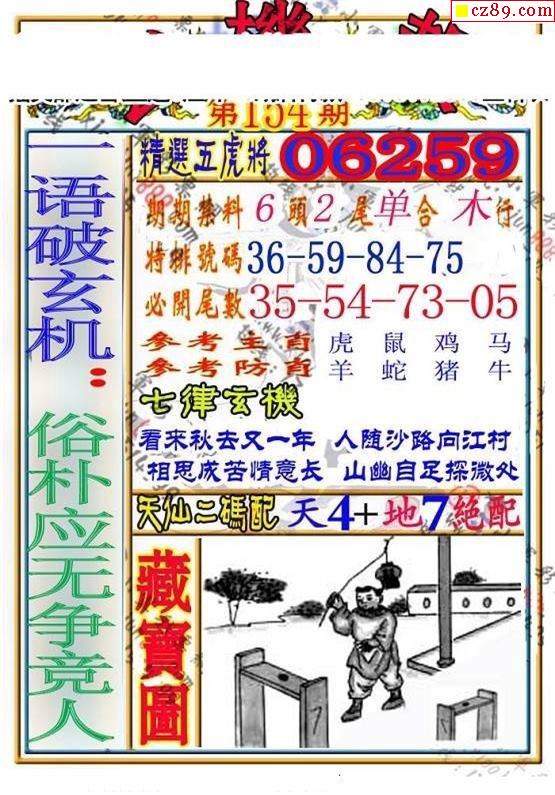 cz89.com
第154期
一语破玄机：俗朴应无争竞人
精選五虎將 06259
期期禁料 6頭2尾单合木行
特排號碼 36-59-84-75
必開尾數 35-54-73-05
參考主肖 虎 鼠 鸡 马
參考防肖 羊 蛇 猪 牛
七律玄機
看来秋去又一年 人随沙路向江村
相思成苦情意长 山幽自足探微处
天仙二碼配 天4+地7絕配
藏寶圖